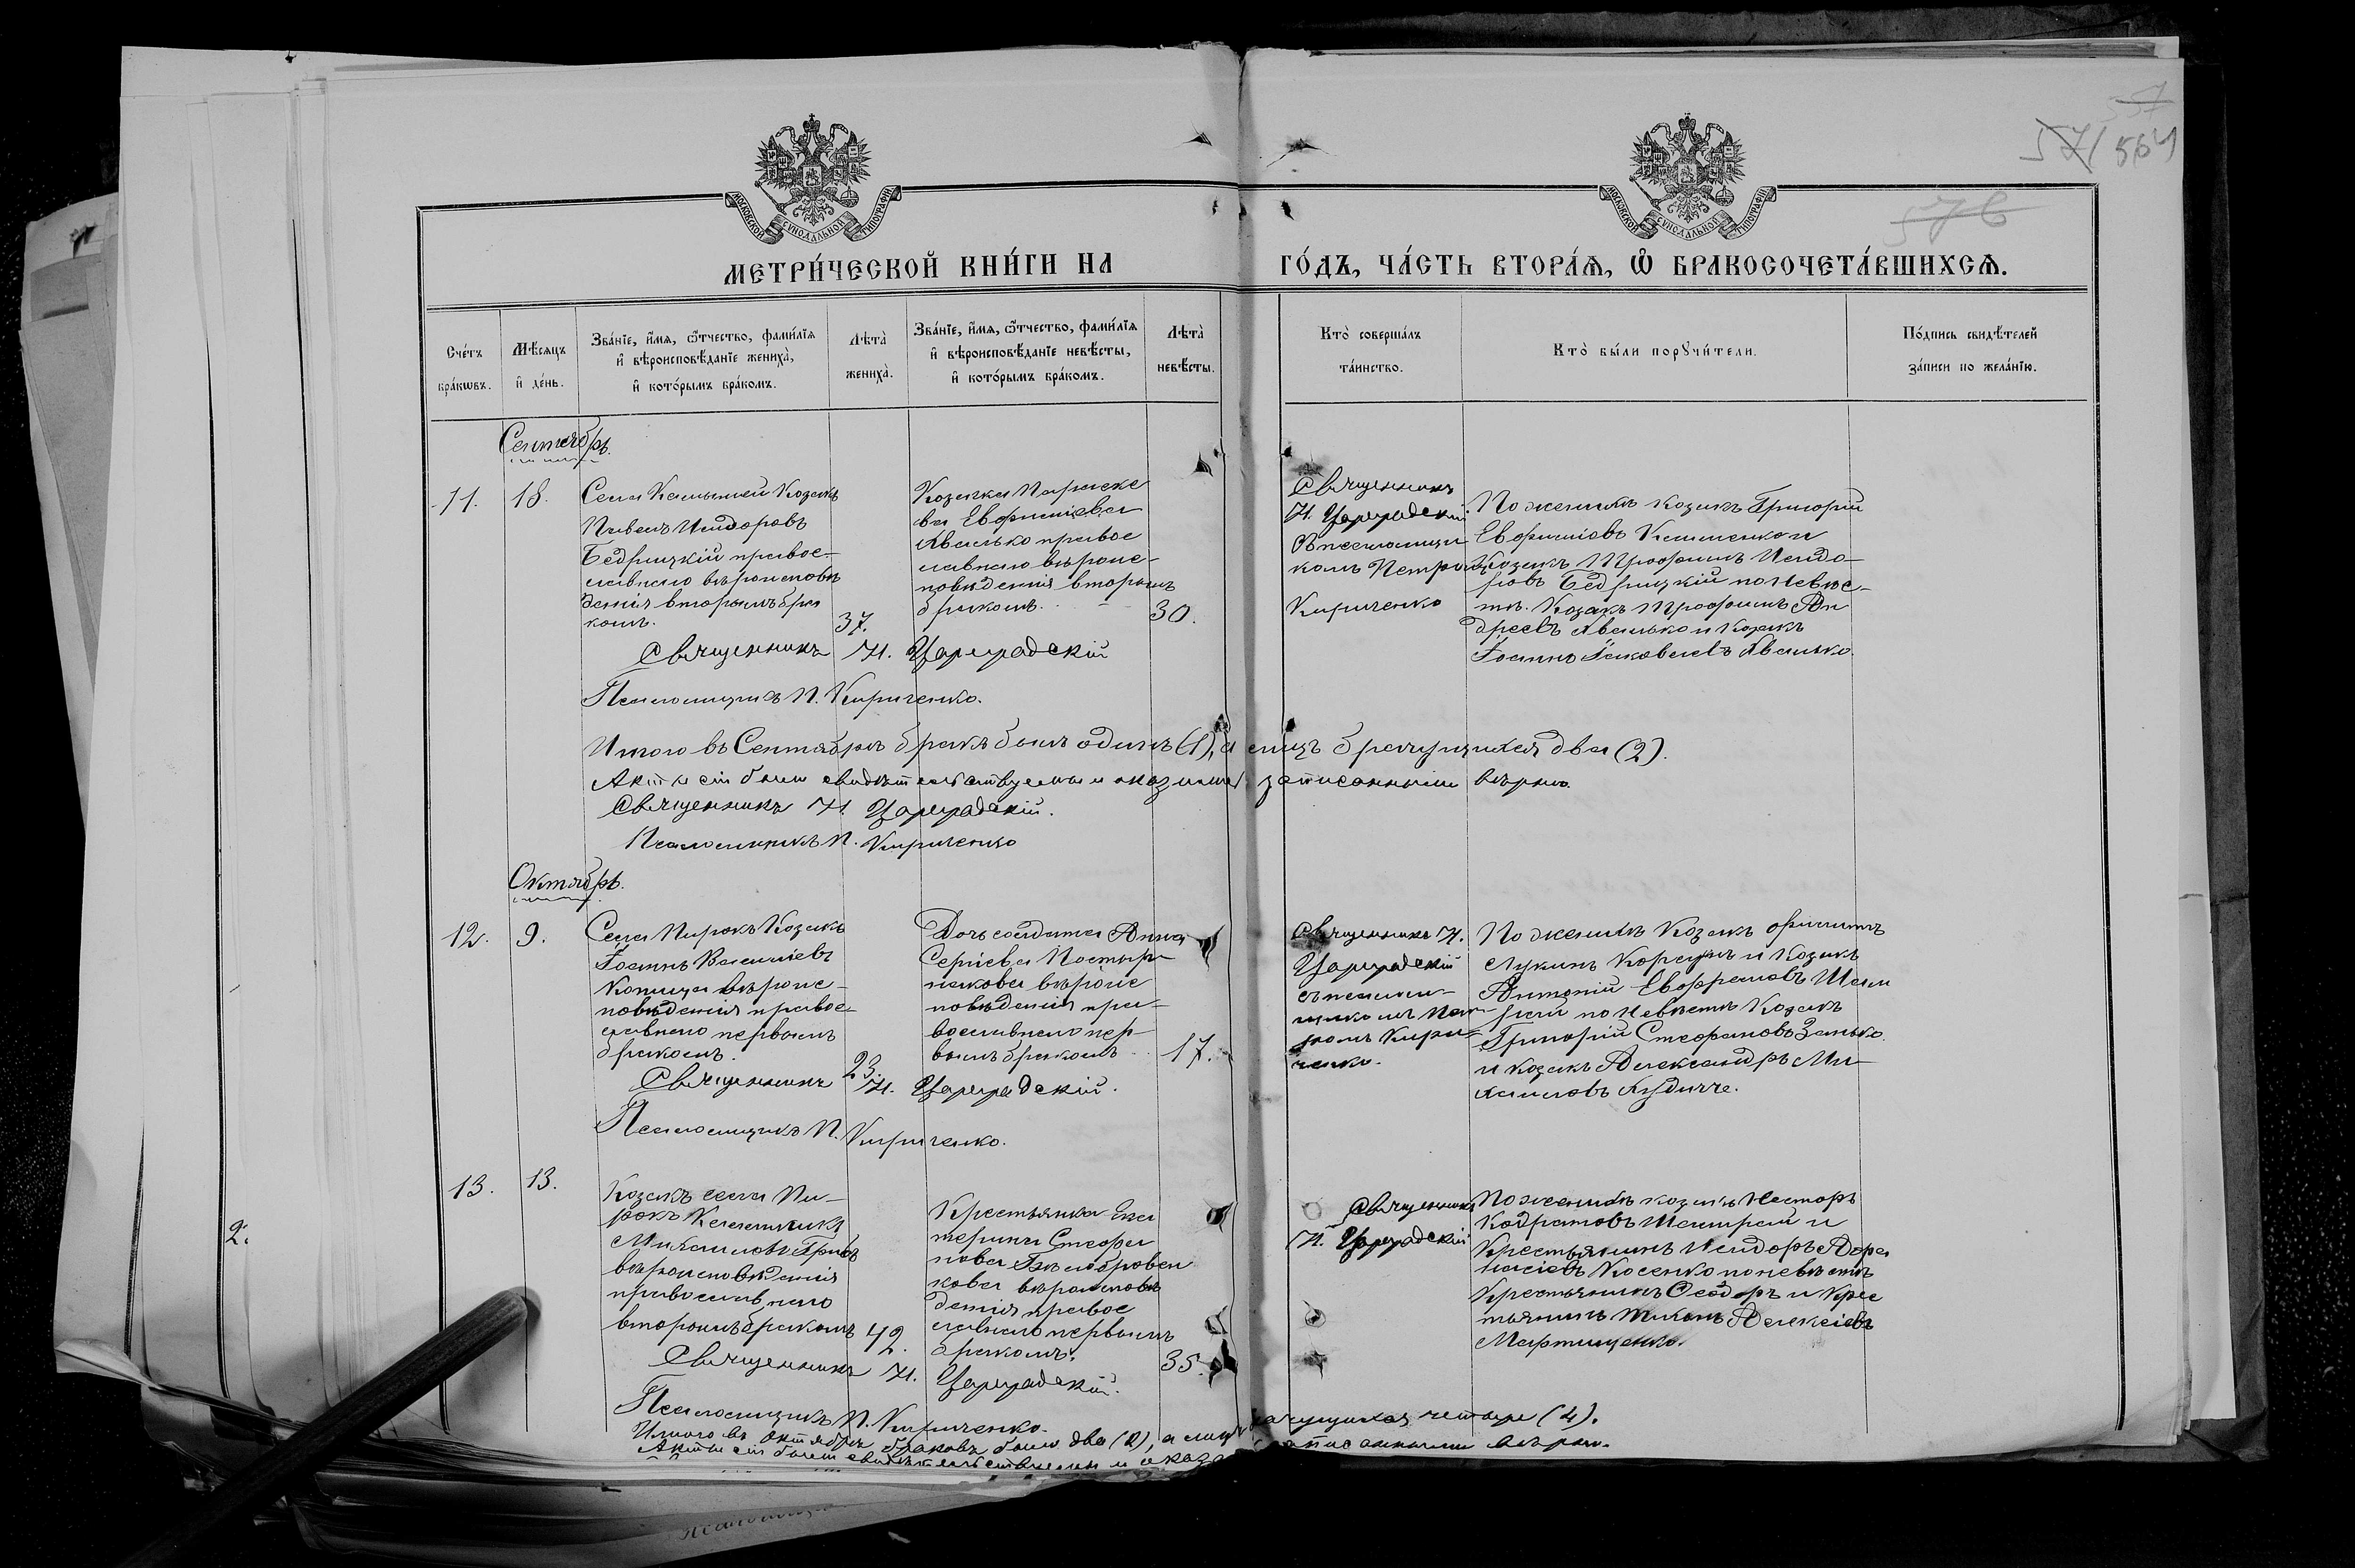 57
57/ 564
576
МОСКОВСКОЙ СѴНОДАЛЬНОЙ ТИПОГРАФІИ
МОСКОВСКОЙ СѴНОДАЛЬНОЙ ТИПОГРАФІИ
МЕТРИ́ЧЕСКОЙ КНИ́ГИ НА ГО́ДЪ, ЧА́СТЬ ВТОРА́Ѧ, Ѽ БРАКОСОЧЕТА́ВШИХСѦ.
Сче́тъ бра́кѡвъ.
Мѣ́сяцъ и҆ де́нь.
Зва́нїе, и҆́мя, ѻ҆́тчество, фами́лїя и҆ вѣроисповѣ́данїе жениха̀, и҆ кото́рымъ бра́комъ.
Лѣта̀ жениха̀.
Зва́нїе, и҆́мя, ѻ҆́тчество, фами́лїя и҆ вѣроисповѣ́данїе невѣ́сты, и҆ кото́рымъ бра́комъ.
Лѣта̀ невѣ́сты.
Кто̀ соверша́лъ та́инство.
Кто̀ бы́ли порꙋчи́тели.
По́дпись свидѣ́телей за́писи по жела́нїю.
Сентябрь.
11.
18.
Села Камышей Козакъ
Павелъ Исидоровъ
Бедрицкій правос-
лавнаго вѣроисповѣ
денія вторымъ бра
комъ.
37.
Козачка Параске
ва Евфиміева
Авалько правос
лавнаго вѣроис-
повѣденія вторымъ
бракомъ.
30.
Священникъ
И. Цареградскій
съ псаломщи
комъ Петромъ
Кириченко
По женихѣ козакъ Григорій
Евфиміовъ и
Козакъ Трофимъ Исидо-
ровъ Бедрицкій по невѣс-
тѣ. Козакъ Трофимъ Ан
дреевъ Авалько и Козакъ
Іоаннъ Іаковлевъ Авалько.
Священникъ И. Цареградскій
Псаломщикъ П. Кириченко.
Итого въ Сентябрѣ бракъ былъ одинъ (1), а лицъ брачущихся два (2).
Акты сіи были свидѣтельствуемы и оказались записанными вѣрно.
Священникъ И. Цареградскій.
Псаломщикъ П. Кириченко
Октябрь.
12.
9.
Села Пирокъ Козакъ
Іоаннъ Василіевъ
Копица вѣроис-
повѣденія правос-
лавнаго первымъ
бракомъ.
23.
Дочь солдата Анна
Сергіева Постыр-
накова вѣроис
повѣденія пра-
вославнаго пер-
вымъ бракомъ
17.
Священникъ И.
Цареградскій
съ псалом-
щикомъ Пет-
ромъ Кири-
ченко.
По женихѣ Козакъ Филиппъ
Лукинъ Корсунъ и Козакъ
Антоній Евфремовъ
по невѣстѣ Козакъ
Григорій Стефановъ Занько
и козакъ Александръ Ми-
хаиловъ
Священникъ И. Цареградскій.
Псаломщикъ П. Кириченко.
13.
13.
Козакъ села Пи-
рокъ Каллиникъ
Михаиловъ Грибъ
вѣроисповѣденія
православнаго
вторымъ бракомъ
42.
Крестьянка Ека
терина Стефа
нова Бѣлобровен
кова вѣроисповѣ
денія правос
лавнаго первымъ
бракомъ.
35.
Священникъ
И. Цареградскій
По женихѣ козакъ Несторъ
Кодратовъ и
Крестьянинъ Исидоръ Афа
насіевъ Косенко по невѣстѣ
Крестьянинъ Ѳеодоръ и Крес
тьянинъ Тихонъ Алексіевъ
Мартыненко.
Священникъ И. Цареградскій.
Псаломщикъ П. Кириченко.
Итого въ Октябрѣ браковъ было два (2), а лицъ брачущихся четыре (4).
Акты сіи были свидѣтельствуемы и оказа записанными вѣрно.
2.